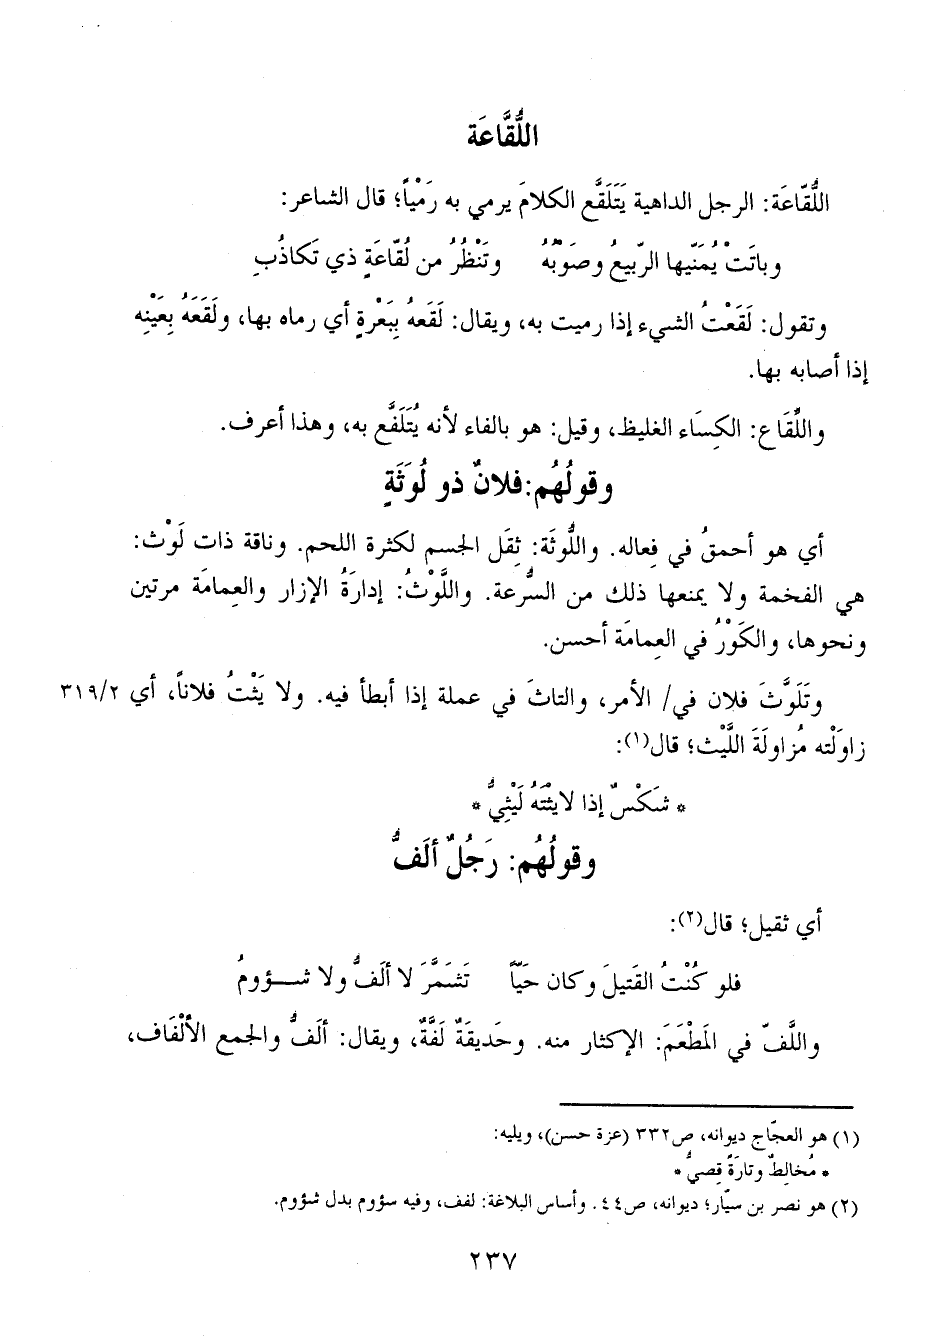 اللُّقَّاعَة
اللُّقّاعَة: الرجل الداهية يَتَلَقَّع الكلامَ يرمي به رَمْياً؛ قال الشاعر:
وباتَتْ يُمَنّيها الرّبيعُ وصَوْبُهُ وتَنْظُرُ من لُقّاعَةٍ ذي تَكاذُبِ
وتقول: لَقَعْتُ الشيء إذا رميت به، ويقال: لَقَعهُ بِبَعْرةٍ أي رماه بها، ولَقَعَهُ بِعَيْنِه
إذا أصابه بها.
واللِّقَاع: الكِسَاء الغليظ، وقيل: هو بالفاء لأنه يُتَلَفَّع به، وهذا أعرف.
وقولُهُم: فلانٌ ذو لُوَثَةٍ
أي هو أحمقُ في فِعاله. واللُّوثَة: ثِقَل الجسم لكثرة اللحم. وناقة ذات لَوْث:
هي الفخمة ولا يمنعها ذلك من السُّرعة. واللَّوْثُ: إدارَةُ الإزار والعِمامَة مرتين
ونحوها، والكَوْرُ في العِمامَة أحسن.
وتَلَوَّثَ فلان في/ الأمر، والتاثَ في عملة إذا أبطأ فيه. ولا يَثْتُ فلاناً، أي ٣١٩/٢
زاوَلْته مُزاولَةَ اللَّيْث؛ قال(١):
* شَكْسٌ إذا لايثْتَهُ لَيْثِيُّ *
وقولُهُم: رَجُلٌ ألَفُّ
أي ثقيل؛ قال(٢):
فلو كُنْتُ القَتيلَ وكان حَيّاً تَشَمَّرَ لا ألَفُّ ولا شـــؤومُ
واللَّفّ في المَطْعَمَ: الإكثار منه. وحَديقَةٌ لَفَّةٌ، ويقال: ألَفُّ والجمع الألْفَاف،
(١) هو العجّاج ديوانه، ص٣٣٢ (عزة حسن)، ويليه:
* مُخالِطٌ وتارَةً قِصيُّ *
(٢) هو نصر بن سيّار؛ ديوانه، ص٤٤. وأساس البلاغة: لفف، وفيه سؤوم بدل شؤوم.
٢٣٧